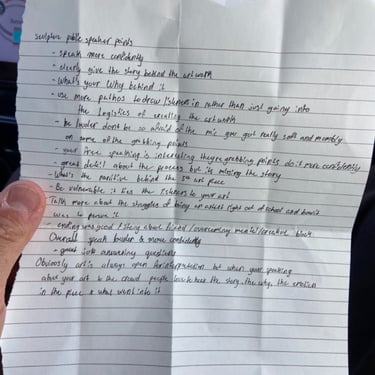 sculpture public speaker points
- speak more confidently
- clearly give the story behind the art work
- What's your Why behind it
- use more pathos to draw listeners in rather than just going into
the logistics of creating the artwork
- be louder dont be so afraid of the mic you got really soft and mumbly
on some of the grabbing points
- your free speaking is interesting theyre grabbing points do it more confidently
- great detail about the process but its missing the story
- What's the narrative behind the art piece
- Be vulnerable it ties the listeners to your art
Talk more about the struggles of being an artist right out of school and how it
was to pursue it
- ending was good / story about overcoming mental/creative block
Overall speak louder & more confidently
- great job answering questions
Obviously art is always open for interpretation but when your speaking
about your art to the crowd people want to hear the story, the why, the emotion
in the piece & what went into it